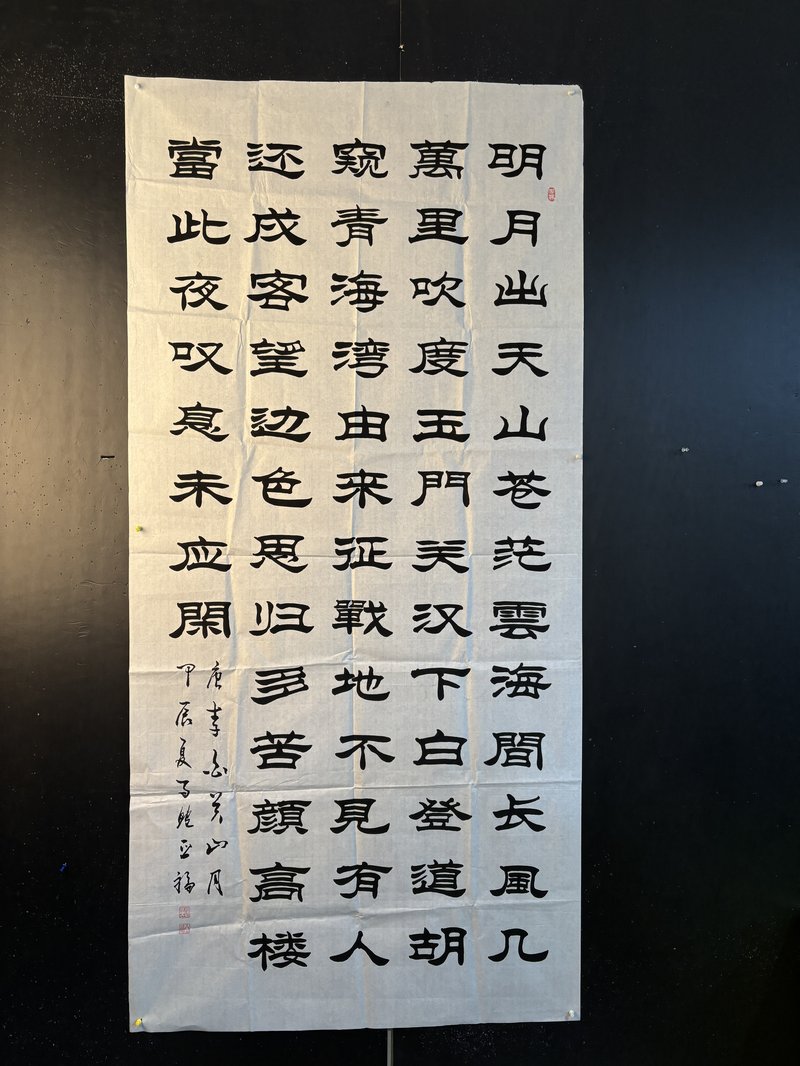 明月出天山苍茫雲海間长風几
萬里吹度玉門关汉下白登道胡
窥青海湾由来征戰地不見有人
还戍客望边色思归多苦顔高楼
當此夜叹息未应閑
唐李白关山月
甲辰夏亚福